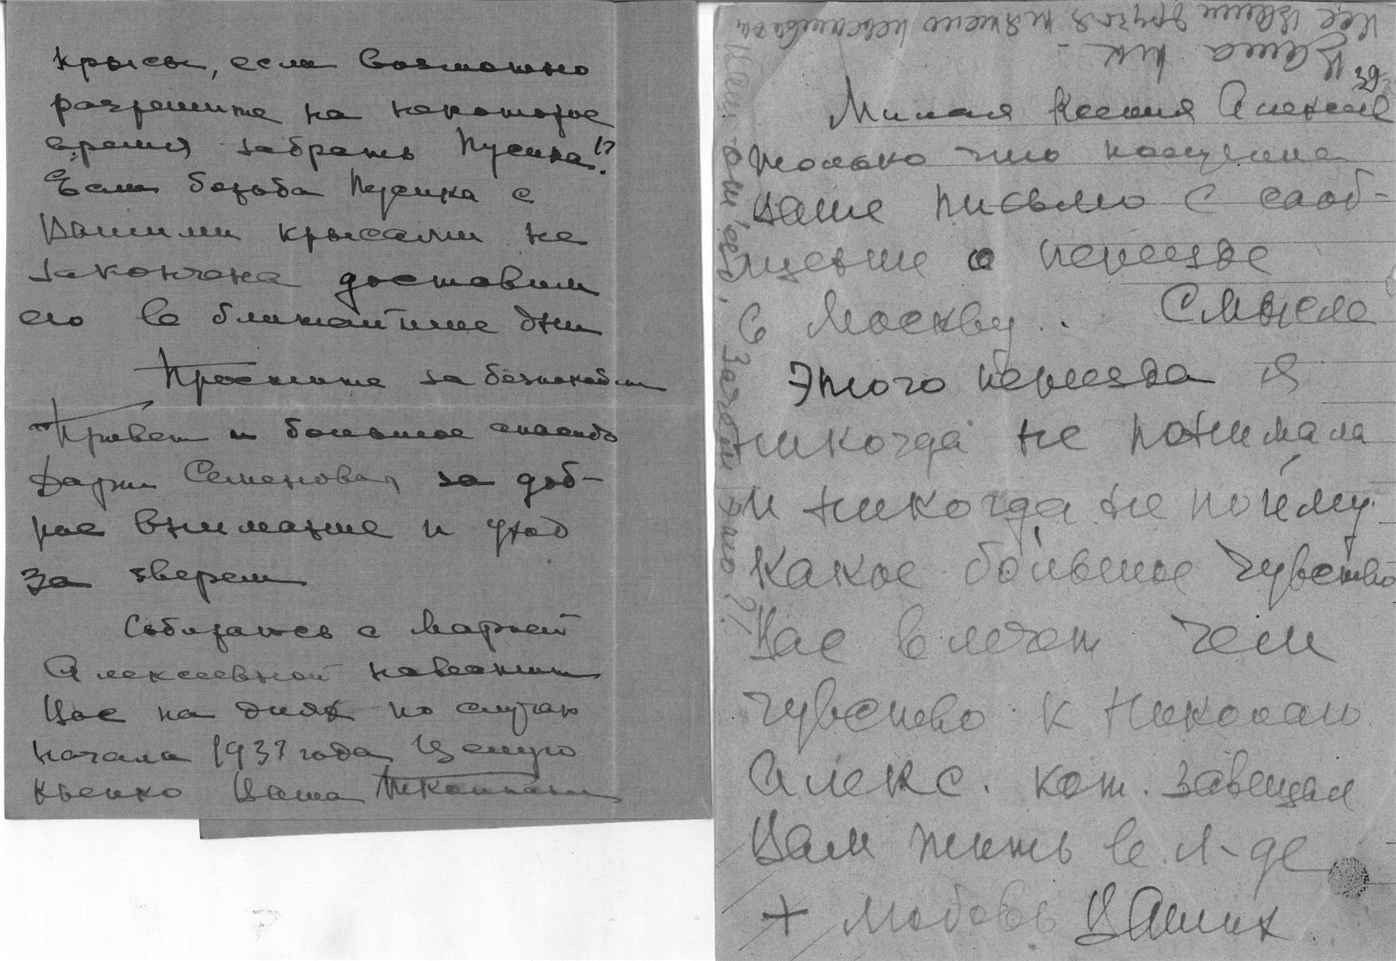 крысы, если возможно
разрешите на некоторое
время забрать Пусика!?
Если борьба Пусика с
Вашими крысами не
закончена доставим
его в ближайшие дни
Простите за безпокойст
Привет и большое спасибо
Дарии Семеновой за доб-
рое внимание и уход
за зверем
Собираюсь с Марией
Алексеевной навестить
Вас на днях по случаю
начала 1937 года Целую
крепко Ваша
Все Ваши друзья
Ваша
Милая Ксения Алексеев
только что получила
Ваше письмо с сооб-
щение о переезде
в Москву. Смысла
Этого переезда я
никогда не понимала
и никогда не пойму.
Какое большое чувство
Вас влечет чем
чувство к Николаю
Алекс. кот. завещал
Вам жить в Л-де
+ любовь Ваших
Ваш отъезд. Зачем это?!